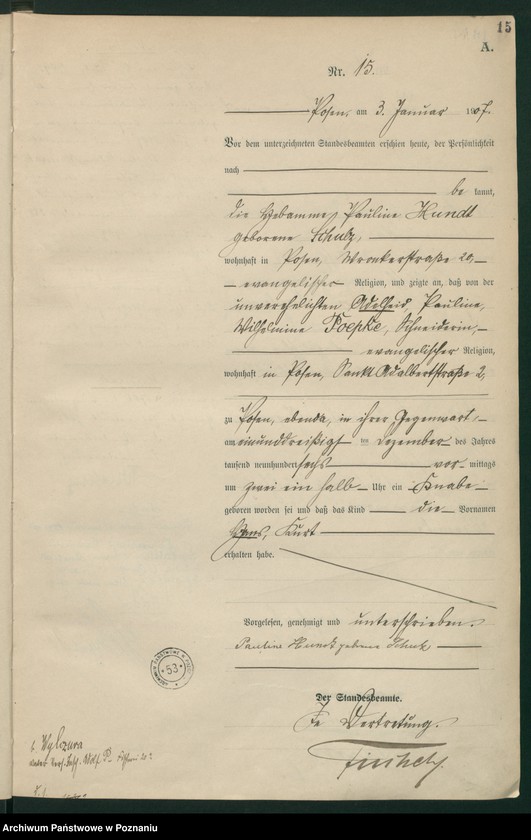 15
A.
Nr. 15.
Posen, am 3. Januar 1907.
Vor dem unterzeichneten Standesbeamten erschien heute, der Persönlichkeit
nach
be kannt,
die Hebamme Pauline Hundt
geborene Schulz,
wohnhaft in Posen, Wronkerstraße 20,
evangelischer Religion, und zeigte an, daß von der
unverehelichten Adelheid, Pauline,
Wilhelmine Poepke, Schneiderin,
evangelischer Religion,
wohnhaft in Posen, Sankt Adalbertstraße 2,
zu Posen, ebenda, in ihrer Gegenwart,
am einunddreißigsten Dezember des Jahres
tausend neunhundert sechs vor mittags
um zwei ein halb Uhr ein Knabe
geboren worden sei und daß das Kind die Vornamen
Hans, Kurt
erhalten habe.
Vorgelesen, genehmigt und unterschrieben.
Pauline Hundt geborene Schulz
Der Standesbeamte.
In Vertretung.
ARCHIWUM PAŃSTWOWE W POZNANIU
53
Archiwum Państwowe w Poznaniu